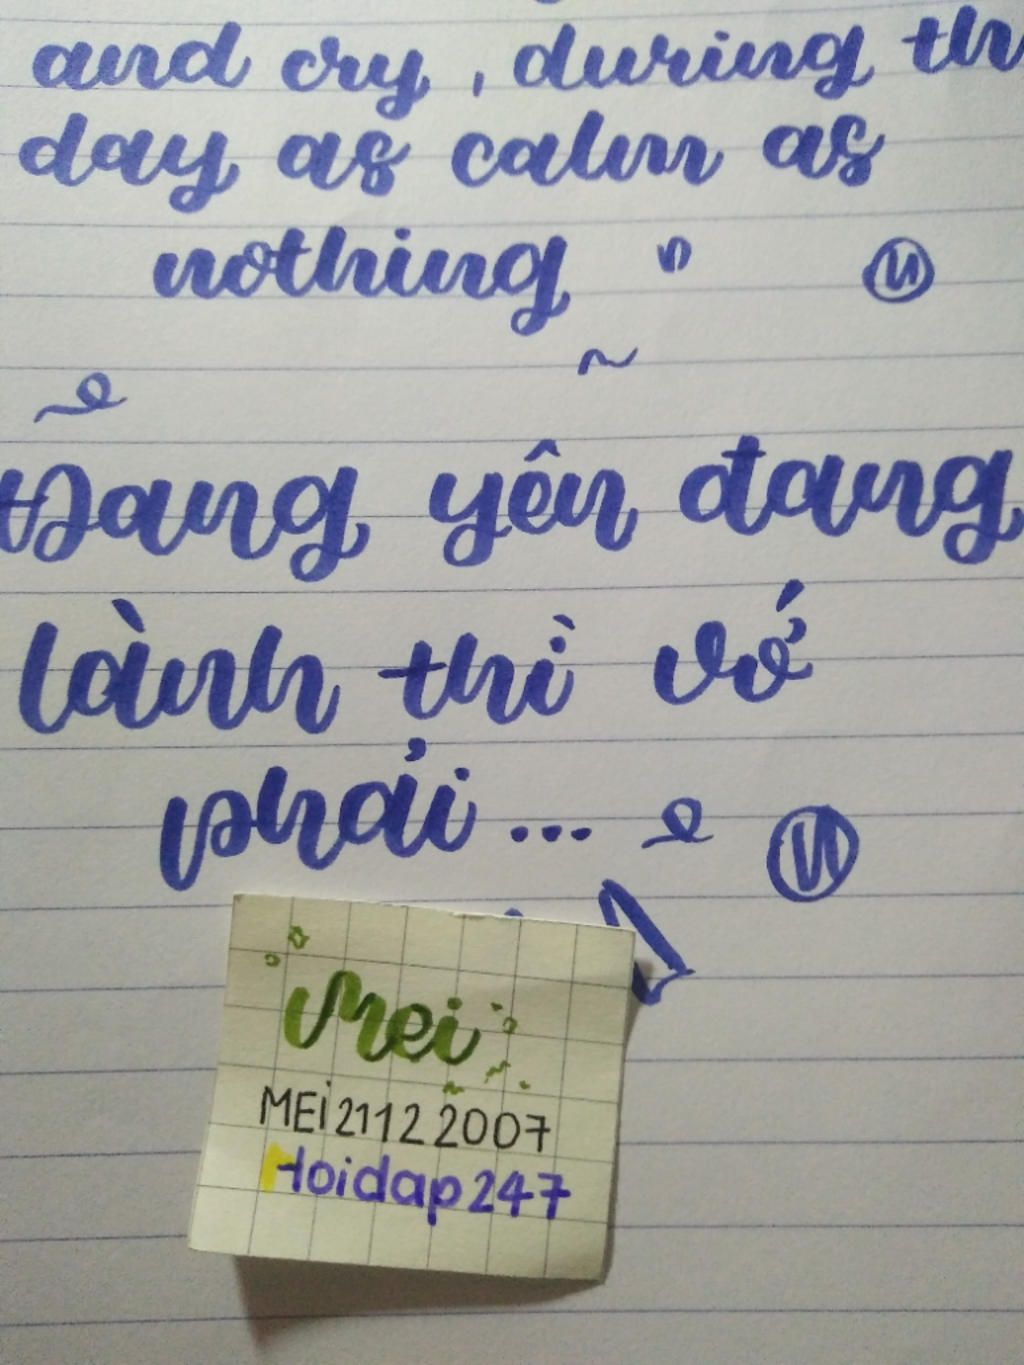 and cry, during th
day as calm as
nothing "
Đang yên đang
lành thì vớ
phải...
Mei
MEi 2112 2007
Hoidap247